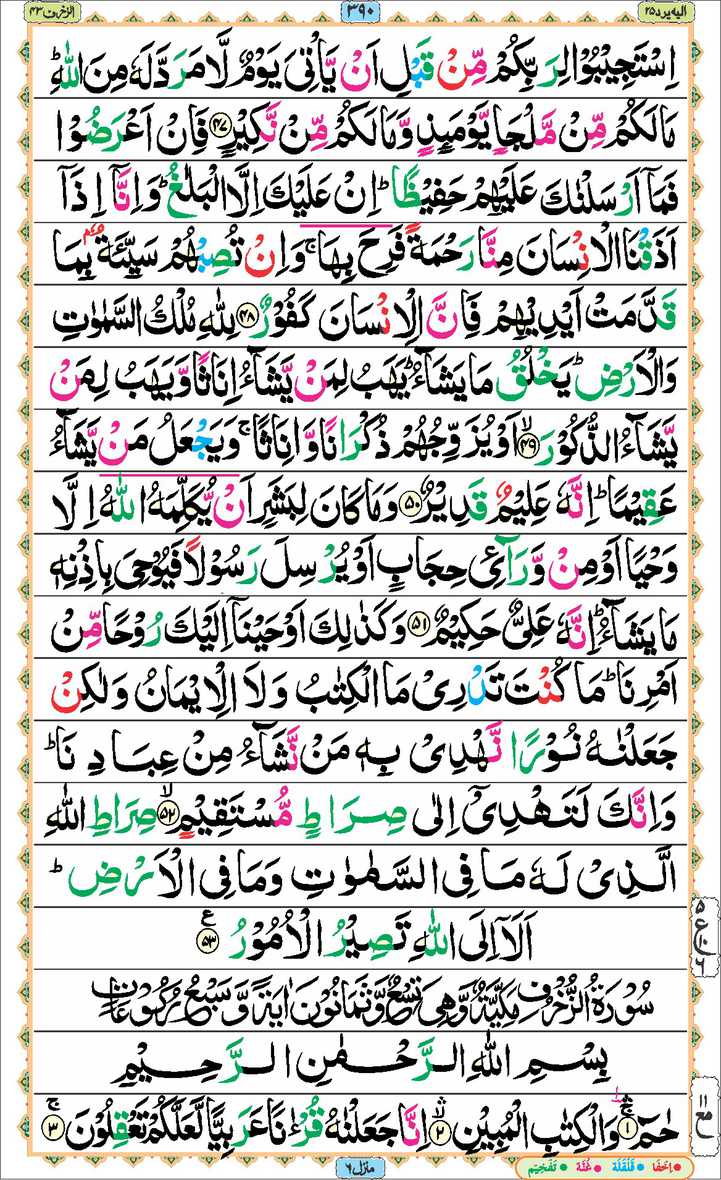 الیه یرد ۲۵
۳۹۰
الزخرف ۴۳
اِسْتَجِیْبُوْا لِرَبِّكُمْ مِّنْ قَبْلِ اَنْ یَّاْتِیَ یَوْمٌ لَّا مَرَدَّ لَهٗ مِنَ اللّٰهِؕ
مَا لَكُمْ مِّنْ مَّلْجَاٍ یَّوْمَىِٕذٍ وَّ مَا لَكُمْ مِّنْ نَّكِیْرٍ ۴۷ فَاِنْ اَعْرَضُوْا
فَمَاۤ اَرْسَلْنٰكَ عَلَیْهِمْ حَفِیْظًاؕ اِنْ عَلَیْكَ اِلَّا الْبَلٰغُؕ وَ اِنَّاۤ اِذَاۤ
اَذَقْنَا الْاِنْسَانَ مِنَّا رَحْمَةً فَرِحَ بِهَاۚ وَ اِنْ تُصِبْهُمْ سَیِّئَةٌۢ بِمَا
قَدَّمَتْ اَیْدِیْهِمْ فَاِنَّ الْاِنْسَانَ كَفُوْرٌ ۴۸ لِلّٰهِ مُلْكُ السَّمٰوٰتِ
وَ الْاَرْضِؕ یَخْلُقُ مَا یَشَآءُؕ یَهَبُ لِمَنْ یَّشَآءُ اِنَاثًا وَّ یَهَبُ لِمَنْ
یَّشَآءُ الذُّكُوْرَۙ ۴۹ اَوْ یُزَوِّجُهُمْ ذُكْرَانًا وَّ اِنَاثًاۚ وَ یَجْعَلُ مَنْ یَّشَآءُ
عَقِیْمًاؕ اِنَّهٗ عَلِیْمٌ قَدِیْرٌ ۵۰ وَ مَا كَانَ لِبَشَرٍ اَنْ یُّكَلِّمَهُ اللّٰهُ اِلَّا
وَحْیًا اَوْ مِنْ وَّرَآئِ حِجَابٍ اَوْ یُرْسِلَ رَسُوْلًا فَیُوْحِیَ بِاِذْنِهٖ
مَا یَشَآءُؕ اِنَّهٗ عَلِیٌّ حَكِیْمٌ ۵۱ وَ كَذٰلِكَ اَوْحَیْنَاۤ اِلَیْكَ رُوْحًا مِّنْ
اَمْرِنَاؕ مَا كُنْتَ تَدْرِیْ مَا الْكِتٰبُ وَ لَا الْاِیْمَانُ وَ لٰكِنْ
جَعَلْنٰهُ نُوْرًا نَّهْدِیْ بِهٖ مَنْ نَّشَآءُ مِنْ عِبَادِنَاؕ
وَ اِنَّكَ لَتَهْدِیْۤ اِلٰى صِرَاطٍ مُّسْتَقِیْمٍۙ ۵۲ صِرَاطِ اللّٰهِ
الَّذِیْ لَهٗ مَا فِی السَّمٰوٰتِ وَ مَا فِی الْاَرْضِؕ
اَلَاۤ اِلَى اللّٰهِ تَصِیْرُ الْاُمُوْرُ ۵۳ ع
۵
ع
۶
سُوْرَةُ الزُّخْرُفِ مَكِّیَّةٌ وَّهِیَ تِسْعٌ وَّثَمَانُوْنَ اٰیَةً وَّسَبْعُ رُكُوْعَاتٍ
بِسْمِ اللّٰهِ الرَّحْمٰنِ الرَّحِیْمِ
حٰمٓ ۱ وَ الْكِتٰبِ الْمُبِیْنِ ۲ اِنَّا جَعَلْنٰهُ قُرْءٰنًا عَرَبِیًّا لَّعَلَّكُمْ تَعْقِلُوْنَۚ ۳
منزل ۶
اِخفَا قَلْقَلَة غُنَّة تَفْخِیْم